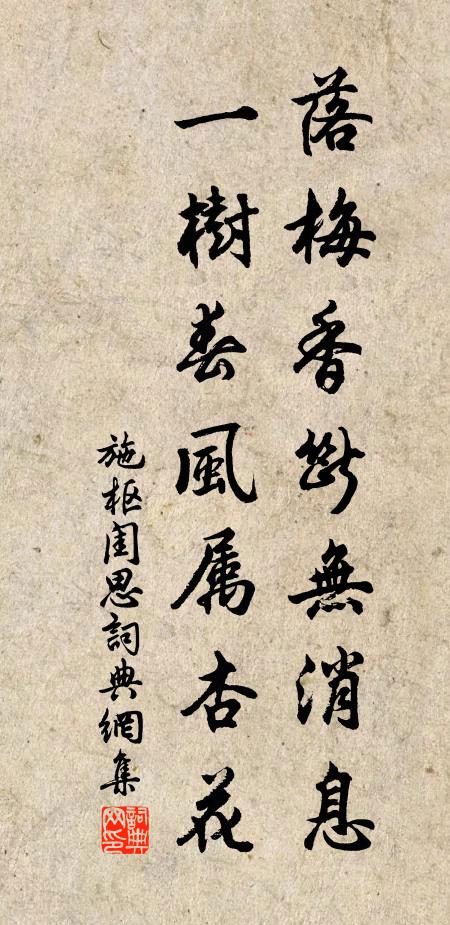 落梅香断無消息
一樹春風属杏花
施枢閨思詞典網集
詞典网印